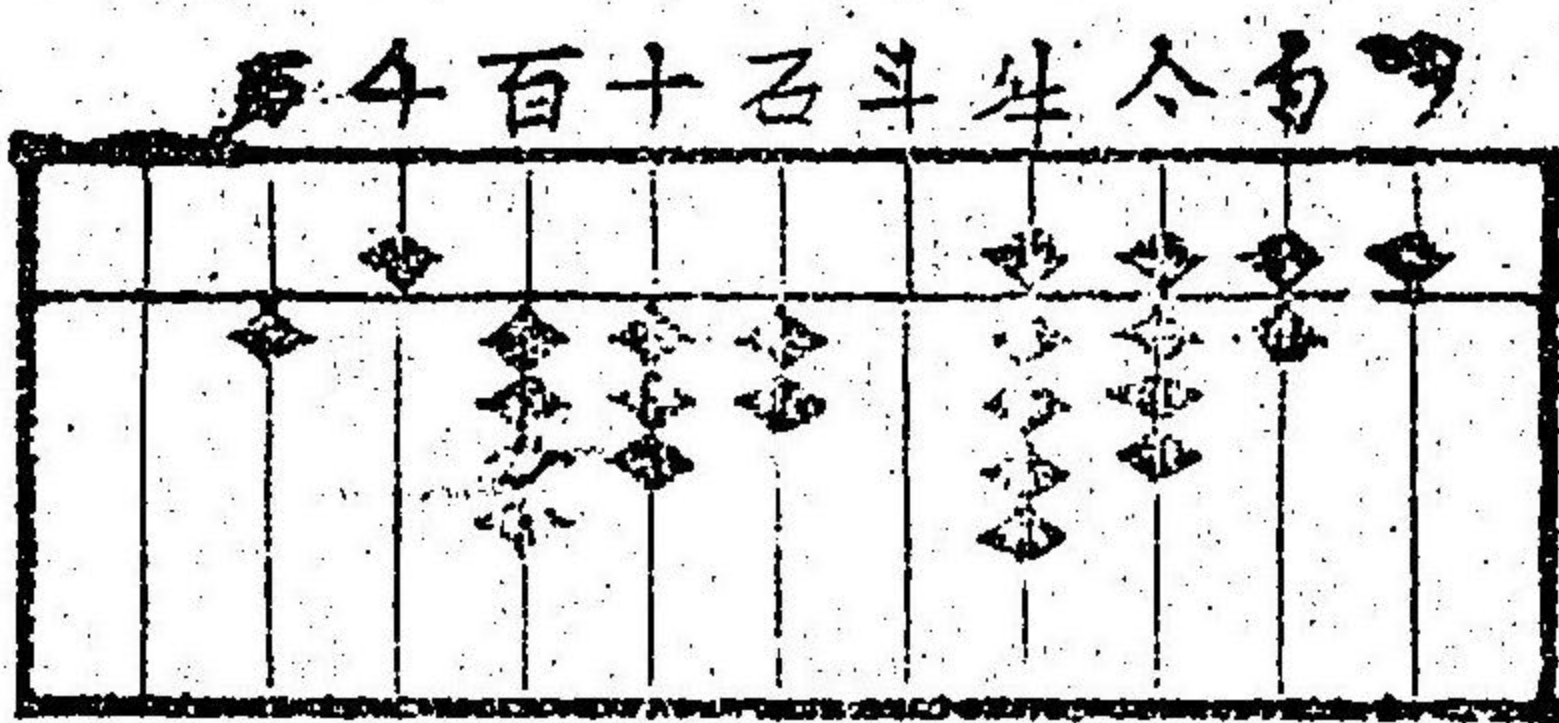 千百十石斗升合勺